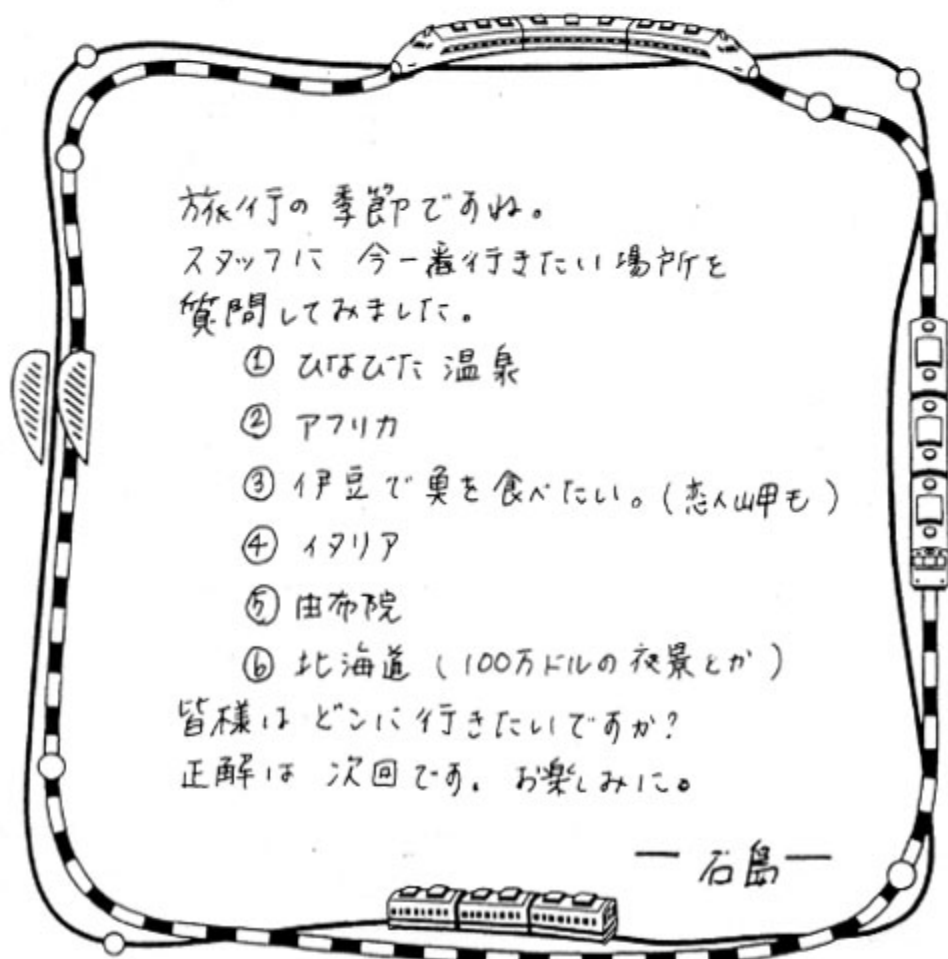 旅行の季節ですね。
スタッフに 今一番行きたい場所を
質問してみました。
① ひなびた温泉
② アフリカ
③ 伊豆で魚を食べたい。(恋人岬も)
④ イタリア
⑤ 由布院
⑥ 北海道 (100万ドルの夜景とか)
皆様は どこに行きたいですか?
正解は 次回です。お楽しみに。
― 石島 ―